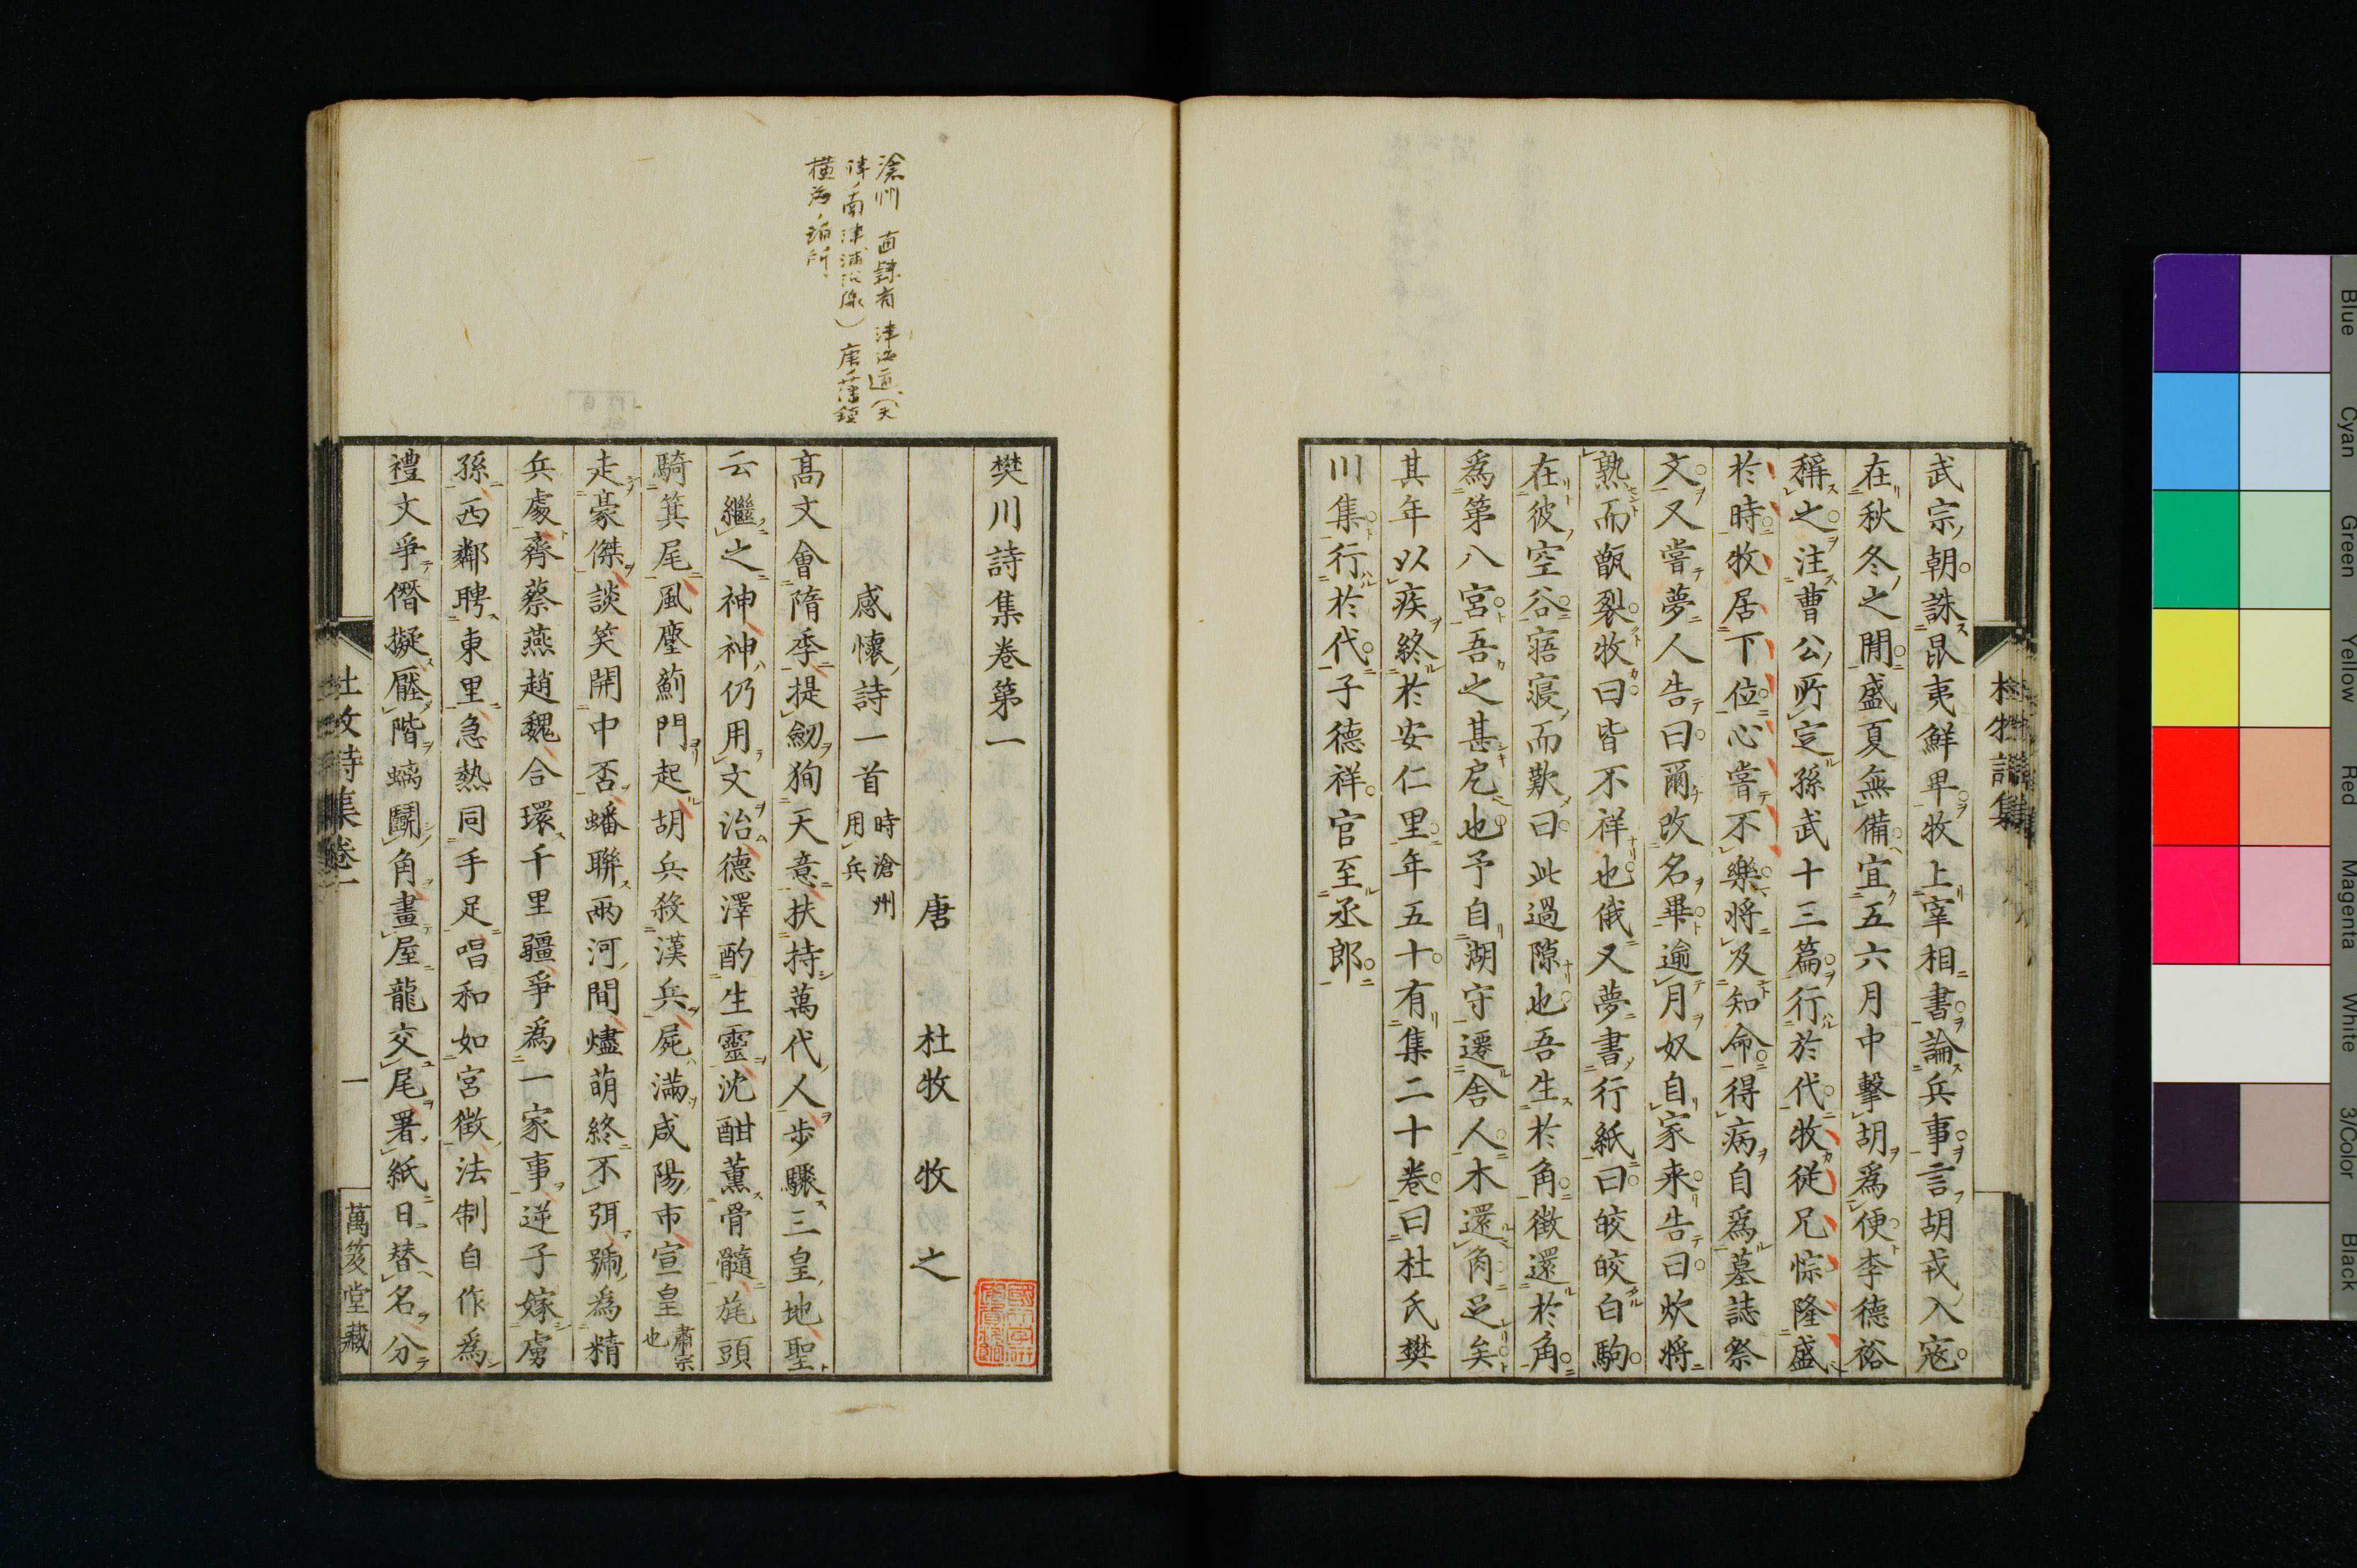 武宗朝誅昆夷鮮卑牧上宰相書論兵事言胡戎入寇
在秋冬之閒盛夏無備宜五六月中擊胡爲便李德裕
稱之注曹公所定孫武十三篇行於代牧從兄悰隆盛
於時牧居下位心嘗不樂將及知命得病自爲墓誌祭
文又嘗夢人告曰爾改名畢逾月奴自家来告曰炊將
熟而甑裂牧曰皆不祥也俄又夢書行紙曰皎皎白駒
在彼空谷寤寢而歎曰此過隙也吾生於角徵還於角
爲第八宮吾之甚戹也予自湖守遷舎人木還角足矣
其年以疾終於安仁里年五十有集二十卷曰杜氏樊
川集行於代子德祥官至丞郎
樊川詩集卷第一
唐 杜牧 牧之
感懷詩一首 時滄州用兵
高文會隋季提劒狥天意扶持萬代人步驟三皇地聖
云繼之神神仍用文治德澤酌生靈沈酣薫骨髓旄頭
騎箕尾風塵薊門起胡兵殺漢兵屍滿咸陽市宣皇 肅宗也
走豪傑談笑開中否蟠聯兩河間燼萌終不弭號爲精
兵處齊蔡燕趙魏合環千里疆爭爲一家事逆子嫁虜
孫西鄰聘東里急熱同手足唱和如宮徵法制自作爲
禮文爭僭擬壓階螭鬭角畫屋龍交尾署紙日替名分
杜牧詩集卷一
一
萬笈堂藏
滄州 直隷省津海道(天
津ノ南津浦沿線)唐ノ藩鎮
横海ノ治所